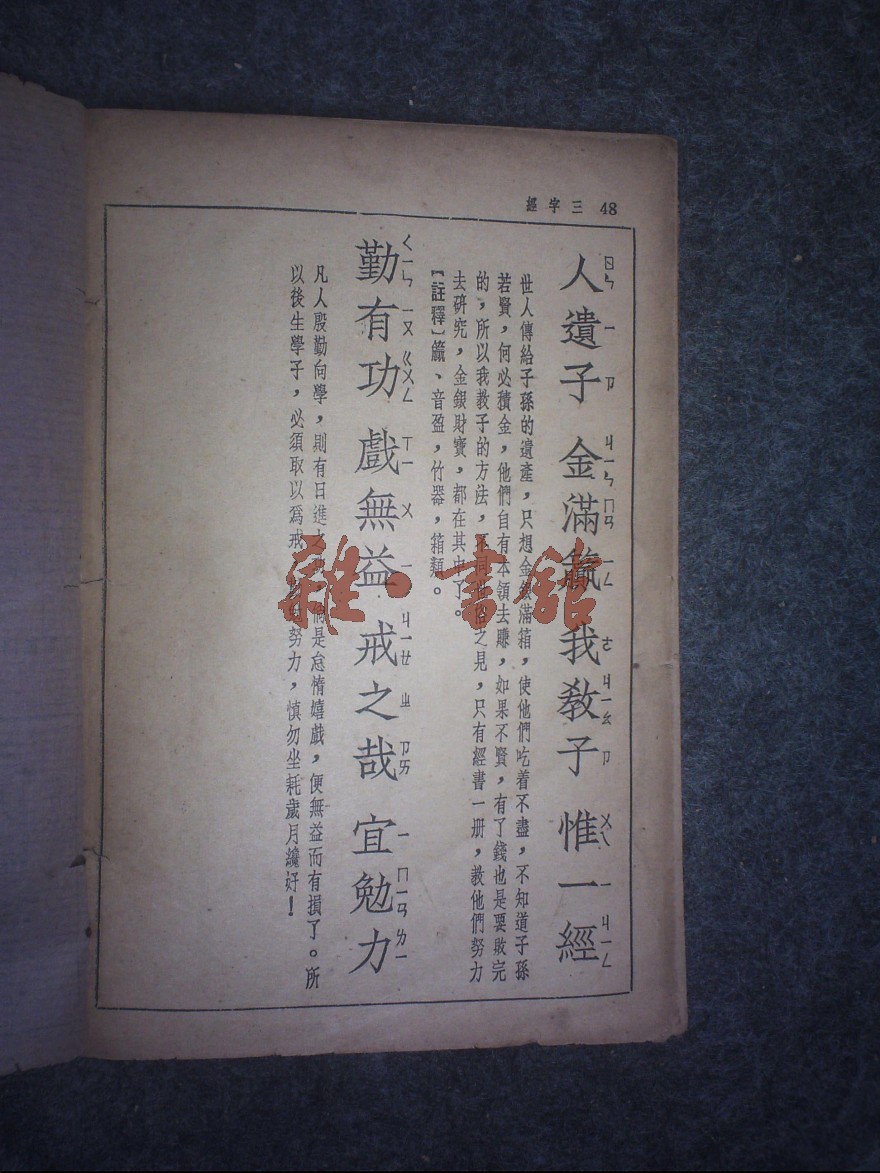 48 三字經
人遺子 金滿籯 我教子 惟一經
ㄖㄣ ㄧ ㄗ ㄐㄧㄣ ㄇㄢ ㄧㄥ ㄜ ㄐㄧㄠ ㄗ ㄨㄟ ㄧ ㄐㄧㄥ
世人傳給子孫的遺產，只想金銀滿箱，使他們吃着不盡，不知道子孫
若賢，何必積金，他們自有本領去賺，如果不賢，有了錢也是要敗完
的，所以我教子的方法，不同世俗之見，只有經書一册，教他們努力
去研究，金銀財寶，都在其中了。
【註釋】籯、音盈，竹器，箱類。
勤有功 戲無益 戒之哉 宜勉力
ㄑㄧㄣ ㄧㄡ ㄍㄨㄥ ㄒㄧ ㄨ ㄧ ㄐㄧㄝ ㄓ ㄗㄞ ㄧ ㄇㄧㄢ ㄌㄧ
凡人殷勤向學，則有日進之 是怠惰嬉戲，便無益而有損了。所
以後生學子，必須取以爲戒 努力，慎勿坐耗歲月纔好！
雜·書館